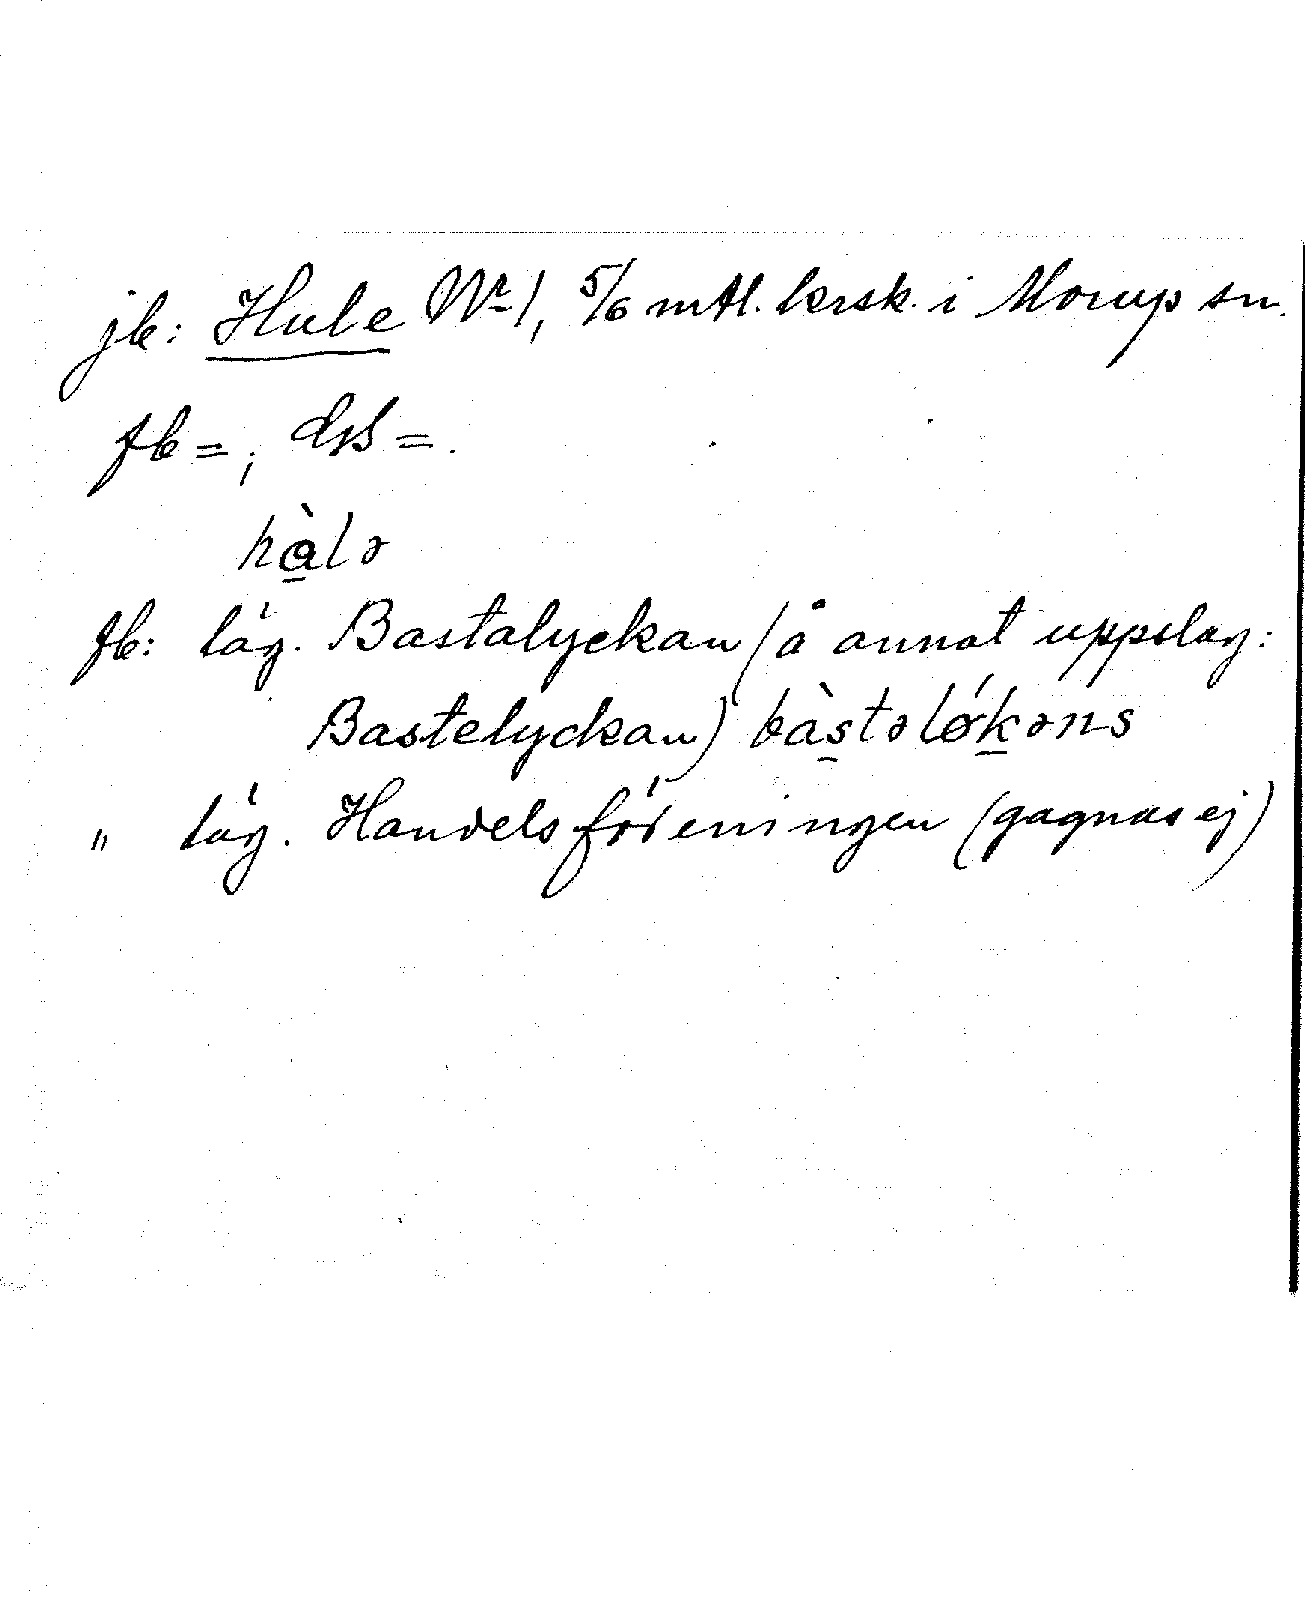 jb: Hule Nr 1, 5/6 mtl. krsk. i Morup sn.
fb = ; dsB = .
hà̱lə
fb: läg. Bastalyckan (å annat uppslag:
Bastelyckan) bàs̱təlǿḵəns
" läg. Handelsföreningen (gagnas ej)